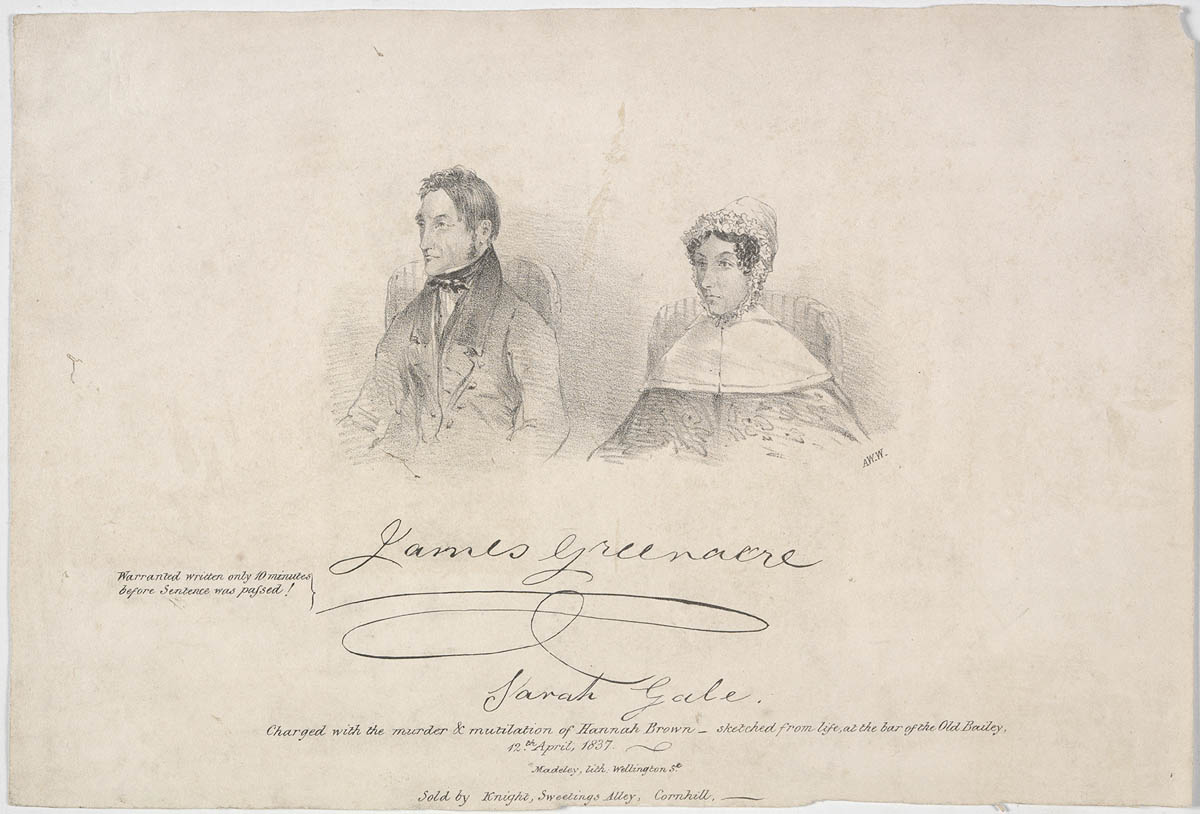 A.W.W.
James Greenacre
Warranted written only 10 minutes
before Sentence was paſsed!
Sarah Gale.
Charged with the murder & mutilation of Hannah Brown _ sketched from life, at the bar of the Old Bailey,
12.th April, 1837.
Madeley, lith. Wellington St.
Sold by Knight, Sweetings Alley, Cornhill, —